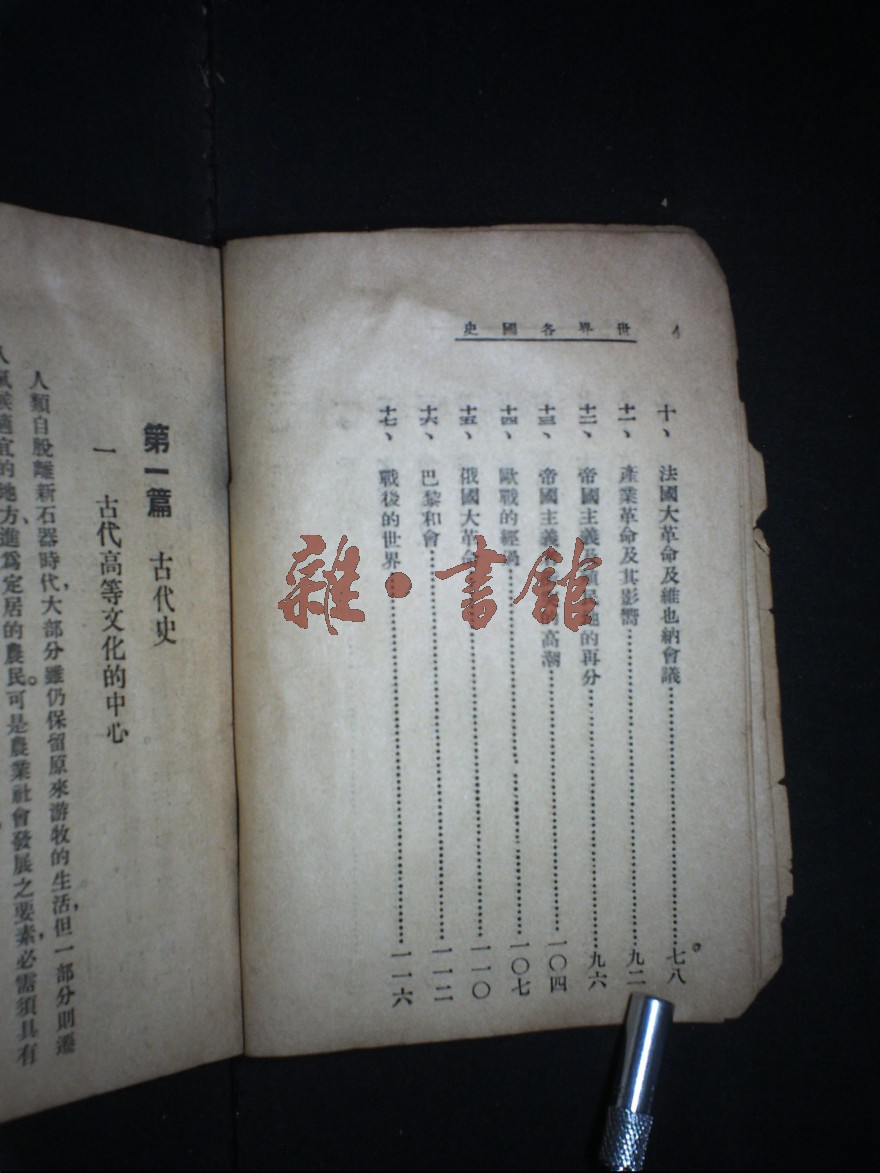 4 世界各國史
十、法國大革命及維也納會議……七八
十一、產業革命及其影響……九二
十二、帝國主義及殖民地的再分……九六
十三、帝國主義 高潮……一〇四
十四、歐戰的經過……一〇七
十五、俄國大革命……一一〇
十六、巴黎和會……一一二
十七、戰後的世界……一一六
雜·書館
第一篇 古代史
一 古代高等文化的中心
人類自脫離新石器時代,大部分雖仍保留原來游牧的生活,但一部分則遷
入氣候適宜的地方,進爲定居的農民。可是農業社會發展之要素,必需須具有